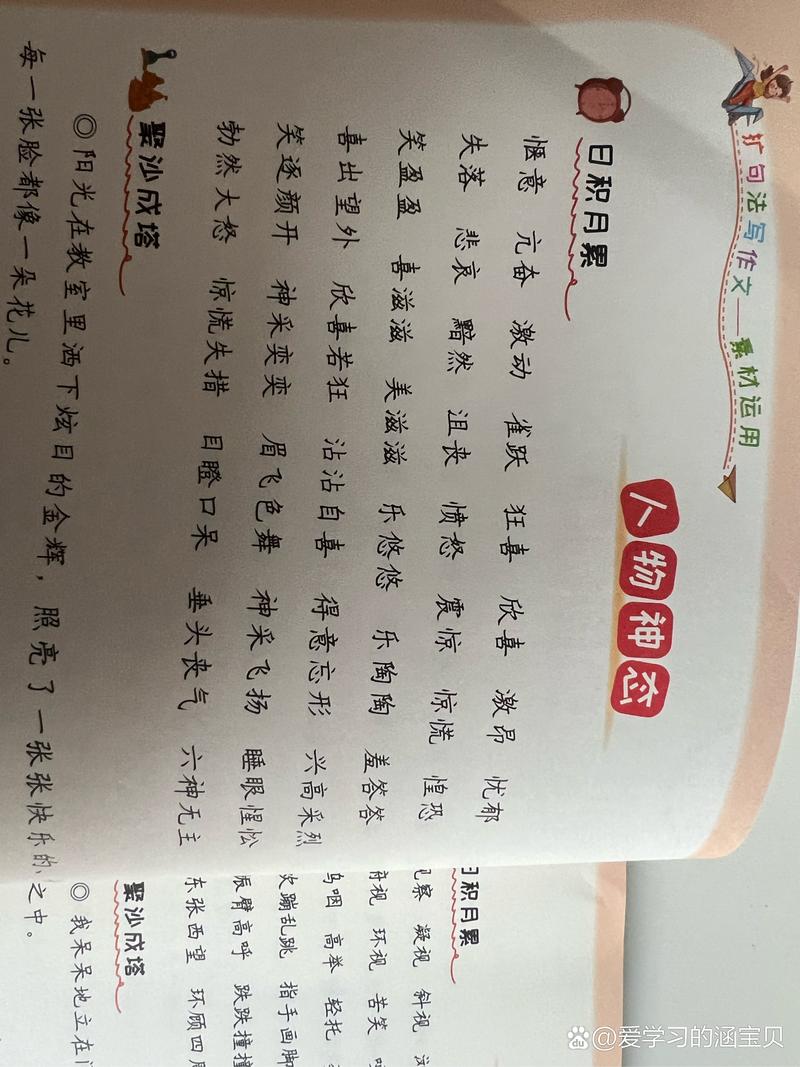 扩句法写作文——素材运用
人物神态
日积月累
惬意 亢奋 激动 雀跃 狂喜 欣喜 激昂 忧郁
失落 悲哀 黯然 沮丧 愤怒 震惊 惊慌 惶恐
笑盈盈 喜滋滋 美滋滋 乐悠悠 乐陶陶 羞答答
喜出望外 欣喜若狂 沾沾自喜 得意忘形 兴高采烈
笑逐颜开 神采奕奕 眉飞色舞 神采飞扬 睡眼惺忪
勃然大怒 惊慌失措 目瞪口呆 垂头丧气 六神无主
聚沙成塔
◎阳光在教室里洒下炫目的金辉，照亮了一张张快乐的
每一张脸都像一朵花儿。
日积月累
凝视 斜视
环视 苦笑
呜咽 高举 轻托
乱跳 指手画脚
振臂高呼 跌跌撞撞
东张西望 环顾四周
聚沙成塔
◎我呆呆地立在
之中。
@爱学习的涵宝贝